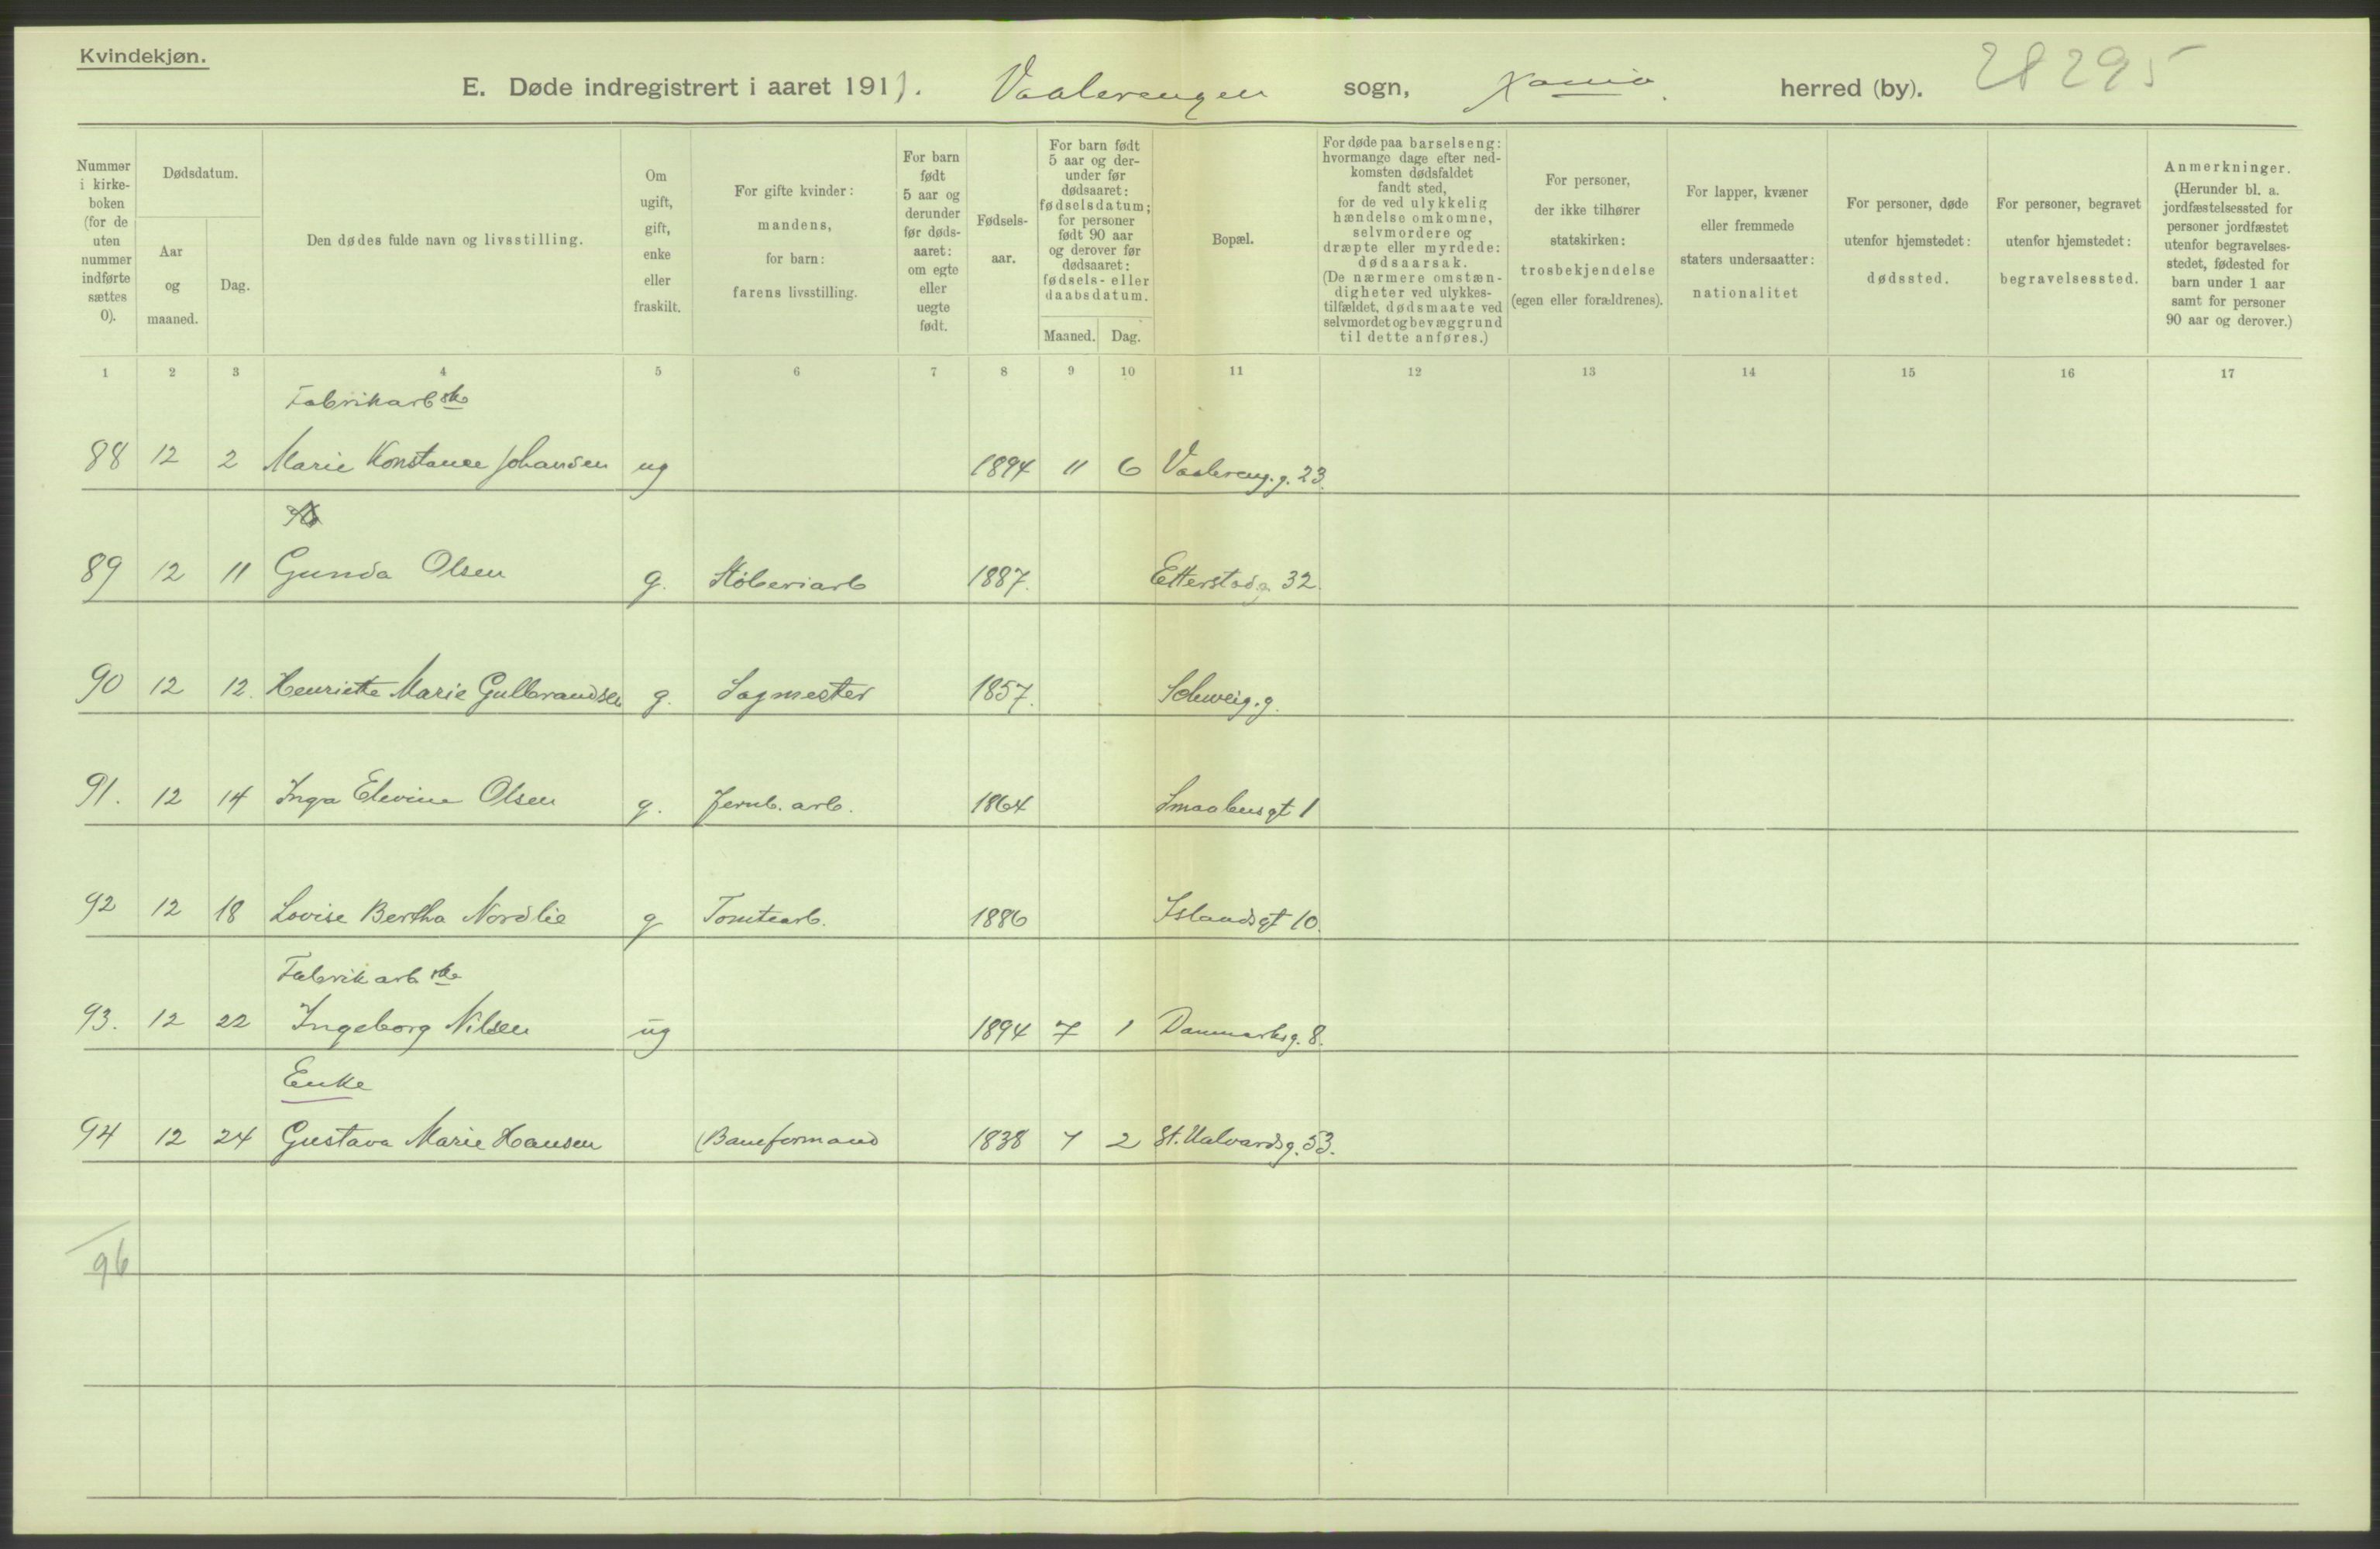 Kvindekjøn.
E. Døde indregistrert i aaret 1911. Vaalerengen sogn, Xania herred (by). 28295
Nummer i kirkeboken (for de uten nummer indførte sættes 0).
Dødsdatum.
Aar og maaned.
Dag.
Den dødes fulde navn og livsstilling.
Om ugift, gift, enke eller fraskilt.
For gifte kvinder: mandens, for barn: farens livsstilling.
For barn født 5 aar og derunder før dødsaaret: om egte eller uegte født.
Fødselsaar.
For barn født 5 aar og derunder før dødsaaret: fødselsdatum; for personer født 90 aar og derover før dødsaaret: fødsels- eller daabsdatum.
Maaned. Dag.
Bopæl.
For døde paa barselseng: hvormange dage efter nedkomsten dødsfaldet fandt sted, for de ved ulykkelig hændelse omkomne, selvmordere og dræpte eller myrdede: dødsaarsak. (De nærmere omstændigheter ved ulykkestilfældet, dødsmaate ved selvmordet og bevæggrund til dette anføres.)
For personer, der ikke tilhører statskirken: trosbekjendelse (egen eller forældrenes).
For lapper, kvæner eller fremmede staters undersaatter: nationalitet
For personer, døde utenfor hjemstedet: dødssted.
For personer, begravet utenfor hjemstedet: begravelsessted.
Anmerkninger. (Herunder bl. a. jordfæstelsessted for personer jordfæstet utenfor begravelsesstedet, fødested for barn under 1 aar samt for personer 90 aar og derover.)
1 2 3 4 5 6 7 8 9 10 11 12 13 14 15 16 17
Fabrikarbske
88 12 2 Marie Konstance Johansen ug 1894 11 6 Vaalereng.g. 23.
89 12 11 Gunda Olsen g. Støberiarb 1887. Etterstadg. 32.
90 12 12. Henriette Marie Gulbrandsen g. Sagmester 1857. Schweig.g.
91. 12 14 Inga Elevine Olsen g. Jernb. arb. 1864 Smaabergt 1
92 12 18 Lovise Bertha Nordlie g Tomtearb. 1886 Islandsgt 10.
Fabrikarbske
93. 12 22 Ingeborg Nilsen ug 1894 7 1 Danmarksg. 8.
Enke
94 12 24 Gustava Marie Hansen (Baneformand 1838 7 2 St. Halvardsg. 53.
96